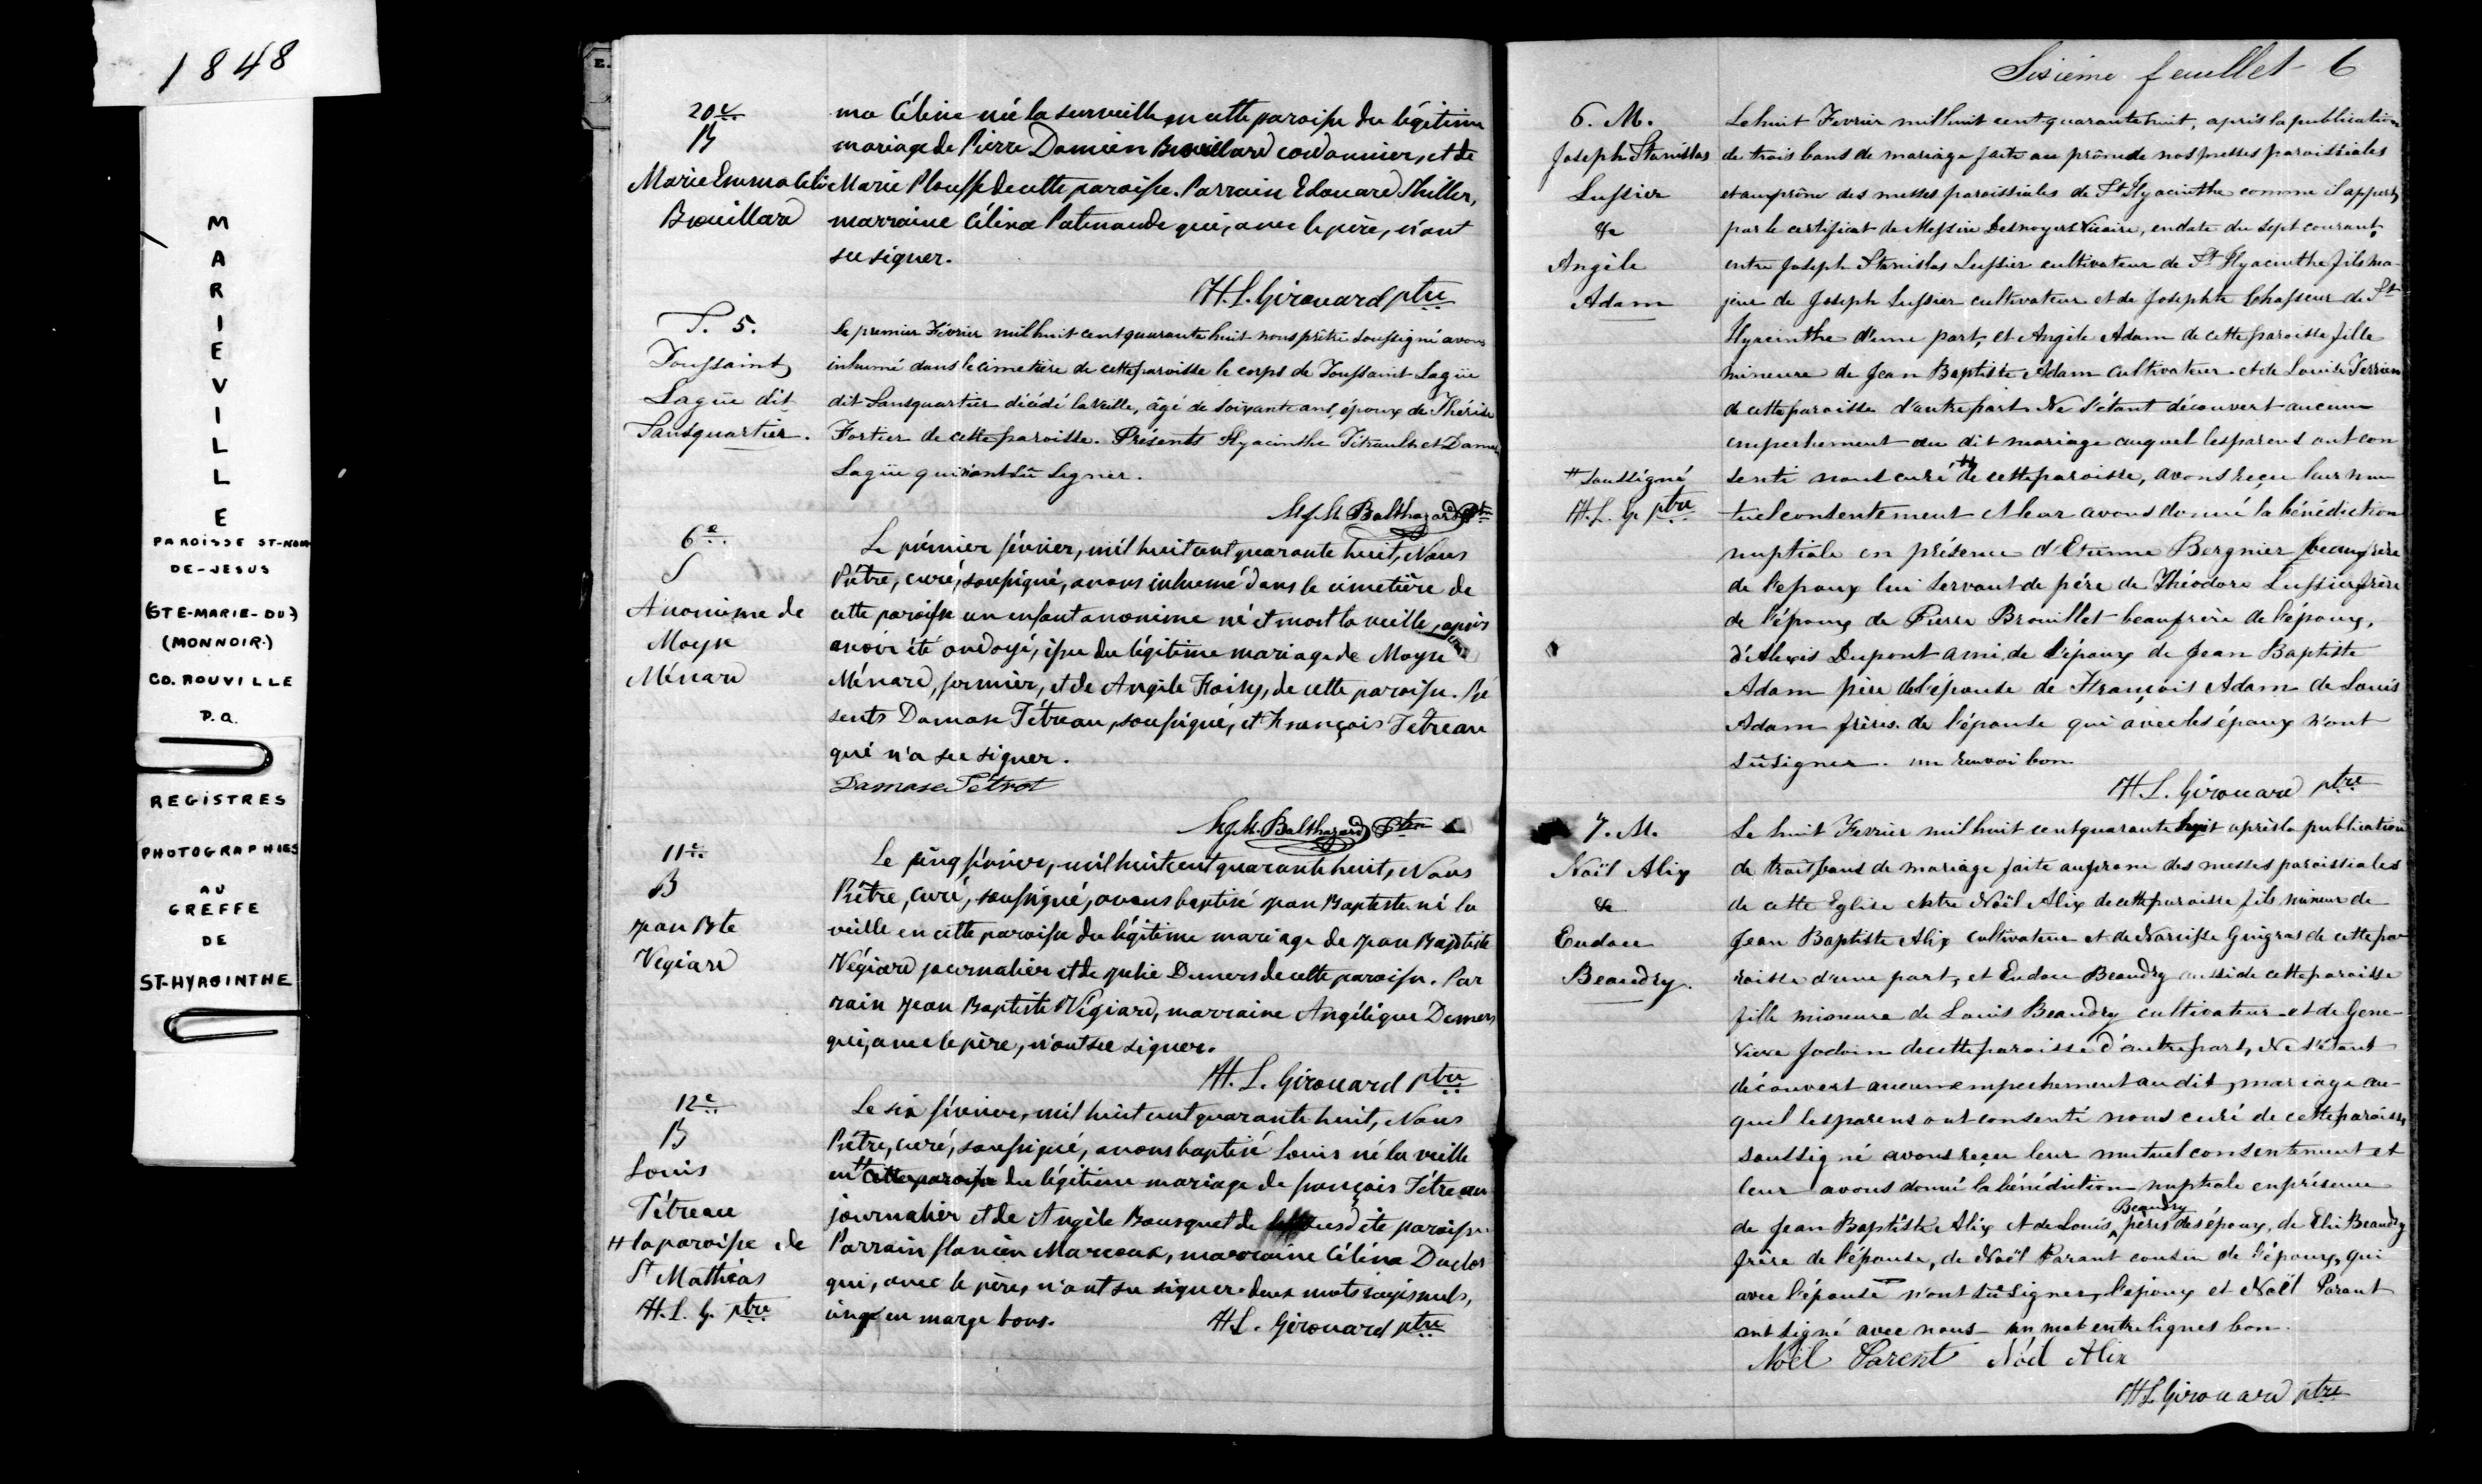 1848
MARIEVILLE
PAROISSE ST-NOM
DE-JESUS
(STE-MARIE-DU)
(MONNOIR.)
CO. ROUVILLE
P.Q.
REGISTRES
PHOTOGRAPHIES
AU
GREFFE
DE
ST-HYACINTHE
E.
20e
B
Marie Emma Céli
Brouillard
ma Céline née la surveille en cette paroisse du légitime
mariage de Pierre Damien Brouillard cordonnier, et de
Marie Plouffe de cette paroisse. Parrain Edouard Thiller,
marraine Célina Patenaude qui, avec le père, n'ont
su signer.
H. L. Girouard ptre
S. 5.
Toussaint
Lagüe dit
Sansquartier.
Le premier Février mil huit cent quarante huit nous prêtre soussigné avons
inhumé dans le cimetière de cette paroisse le corps de Toussaint Lagüe
dit Sansquartier décédé la veille, âgé de soixante ans, époux de Thérèse
Fortier de cette paroisse. Présents Hyacinthe Tétrault et Damase
Lagüe qui n'ont sû signer.
M. J. M. Balthazard Ptre
6e
S
Anonime de
Moyse
Ménard
Le prémier février, mil huit cent quarante huit, Nous
Prêtre, curé, soussigné, avons inhumé dans le cimetière de
cette paroisse un enfant anonime né et mort la veille, après
avoir été ondoyé, issu du légitime mariage de Moyse
Ménard, fermier, et de Angèle Foisy, de cette paroisse. Pré
sents Damase Tétreau, soussigné, et François Tetreau
qui n'a su signer.
Damase Tétrot
M. J. M. Balthazard Ptre
11e
B
Jean Bte
Vegiard
Le cinq février, mil huit cent quarante huit, Nous
Prêtre, curé, soussigné, avons baptisé Jean Baptiste né la
veille en cette paroisse du légitime mariage de Jean Baptiste
Végiard journalier et de Julie Demers de cette paroisse. Par
rain Jean Baptiste Végiard, marraine Angélique Demers
qui, avec le père, n'ont su signer.
H. L. Girouard ptre
12e
B
Louis
Tétreau
# la paroisse de
St Mathias
H. L. G. ptre
Le six février, mil huit cent quarante huit, Nous
Prêtre, curé, soussigné, avons baptisé Louis né la veille
en # cette paroisse du légitime mariage de françois Tétreau
journalier et de Angèle Bousquet de susdite paroisse
Parrain flavien Marcoux, marraine Célina Duclos
qui, avec le père, n'ont su signer. deux mots rayés nuls,
en marge bons.
H. L. Girouard ptre
Sixième feuillet 6
6. M.
Joseph Stanislas
Lussier
&
Angèle
Adam
Le huit Fevrier mil huit cent quarante huit, après la publication
de trois bans de mariage faite au prône de nos messes paroissiales
et au prône des messes paroissiales de St Hyacinthe comme il appert
par le certificat de Messire Desnoyers Vicaire, en date du sept courant,
entre Joseph Stanislas Lussier cultivateur de St Hyacinthe fils ma-
jeur de Joseph Lussier cultivateur et de Josephte Chasseur de St
Hyacinthe d'une part, et Angèle Adam de cette paroisse fille
mineure de Jean Baptiste Adam cultivateur et de Louise Terrien
de cette paroisse d'autre part. Ne s'étant découvert aucun
empechement au dit mariage auquel les parens ont con
senti nous curé # de cette paroisse, avons reçu leur mu
# soussigné
H. L. G. ptre
tuel consentement et leur avons donné la bénédiction
nuptiale en présence d'Etienne Bergnier beaufrère
de l'epoux lui servant de père de Théodore Lussier frère
de l'époux de Pierre Brouillet beaufrère de l'époux,
d'Alexis Dupont ami de l'époux de Jean Baptiste
Adam père de l'épouse de François Adam de Louis
Adam frères de l'épouse qui avec les époux n'ont
sû signer. un renvoi bon
H. L. Girouard ptre
7. M.
Noël Alix
&
Eudoce
Beaudry.
Le huit Fevrier mil huit cent quarante huit après la publication
de trois bans de mariage faite au prone des messes paroissiales
de cette Eglise entre Noël Alix de cette paroisse fils mineur de
Jean Baptiste Alix cultivateur et de Narcisse Gingras de cette pa
roisse d'une part, et Eudoce Beaudry aussi de cette paroisse
fille mineure de Louis Beaudry cultivateur et de Gene-
vieve Jodoin de cette paroisse d'autre part, Ne s'étant
découvert aucun empechement au dit mariage au-
quel les parens ont consenti nous curé de cette paroisse
soussigné avons reçu leur mutuel consentement et
leur avons donné la bénédiction nuptiale en présence
de Jean Baptiste Alix et de Louis Beaudry pères des époux, de Elie Beaudry
frère de l'épouse, de Noël Parant cousin de l'époux, qui
avec l'épouse n'ont sû signer, l'époux et Noël Parant
ont signé avec nous un mot entre lignes bon.
Noël Parent Noël Alix
H L Girouard ptre